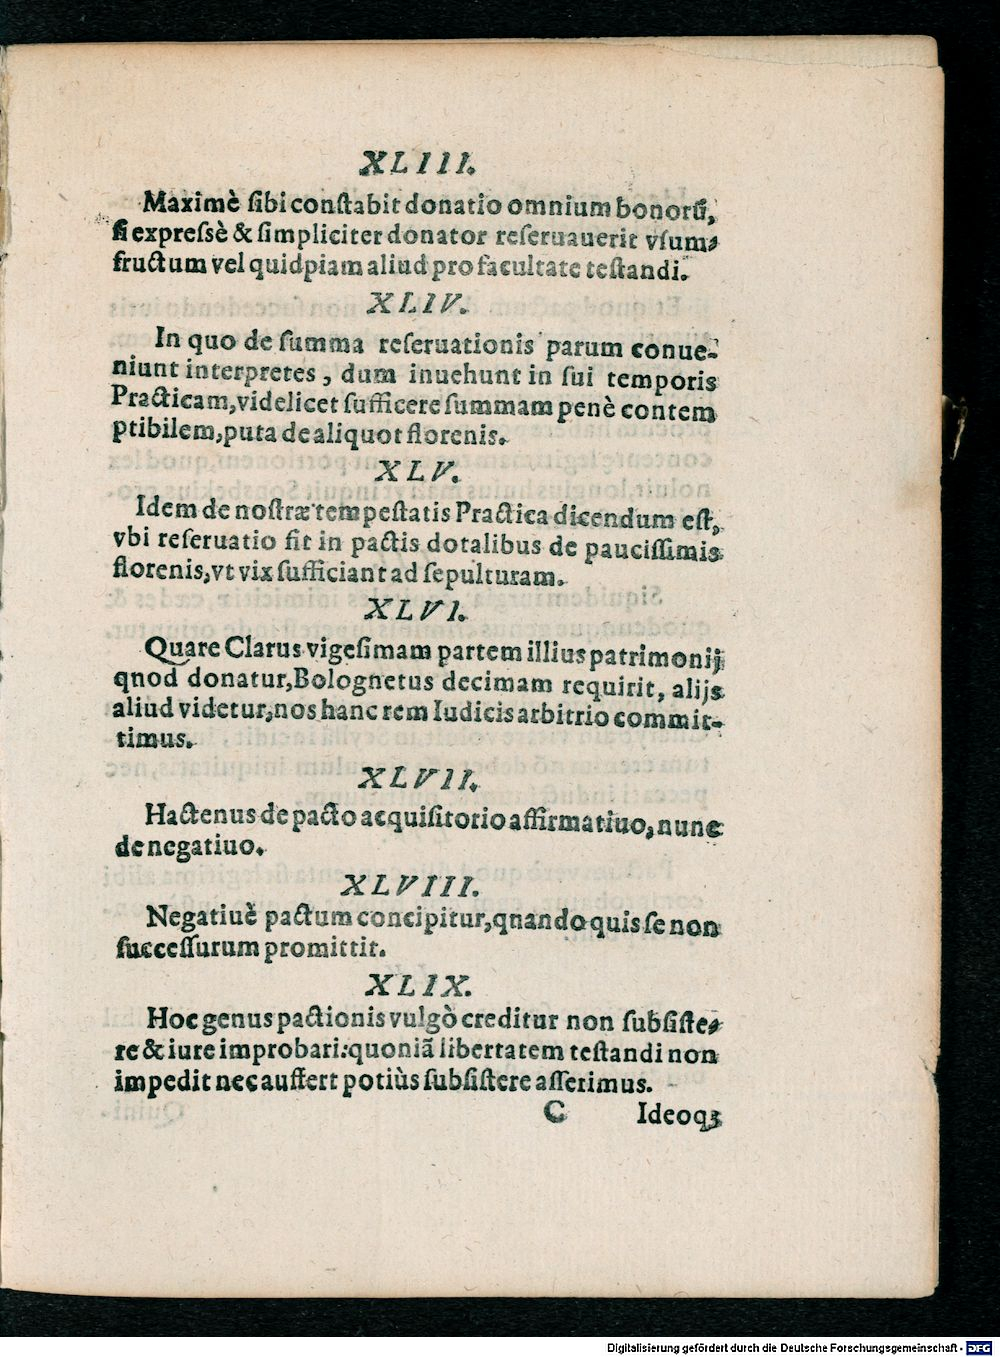 XLIII.
Maximè ſibi conſtabit donatio omnium bonorũ,
ſi expreſsè & ſimpliciter donator reſeruauerit vſum-
fructum vel quidpiam aliud pro facultate teſtandi.
XLIV.
In quo de ſumma reſeruationis parum conue-
niunt interpretes, dum inuehunt in ſui temporis
Practicam, videlicet ſufficere ſummam penè contem
ptibilem, puta de aliquot florenis.
XLV.
Idem de noſtræ tempeſtatis Practica dicendum eſt,
vbi reſeruatio ſit in pactis dotalibus de pauciſſimis
florenis, vt vix ſufficiant ad ſepulturam.
XLVI.
Quare Clarus vigeſimam partem illius patrimonij
qnod donatur, Bolognetus decimam requirit, alijs
aliud videtur, nos hanc rem Iudicis arbitrio commit-
timus.
XLVII.
Hactenus de pacto acquiſitorio affirmatiuo, nunc
de negatiuo.
XLVIII.
Negatiuè pactum concipitur, qnando quis ſe non
ſucceſſurum promittit.
XLIX.
Hoc genus pactionis vulgò creditur non ſubſiſte-
re & iure improbari: quoniã libertatem teſtandi non
impedit nec auffert potiùs ſubſiſtere aſſerimus.
C Ideoqꝫ
Digitalisierung gefördert durch die Deutsche Forschungsgemeinschaft - DFG